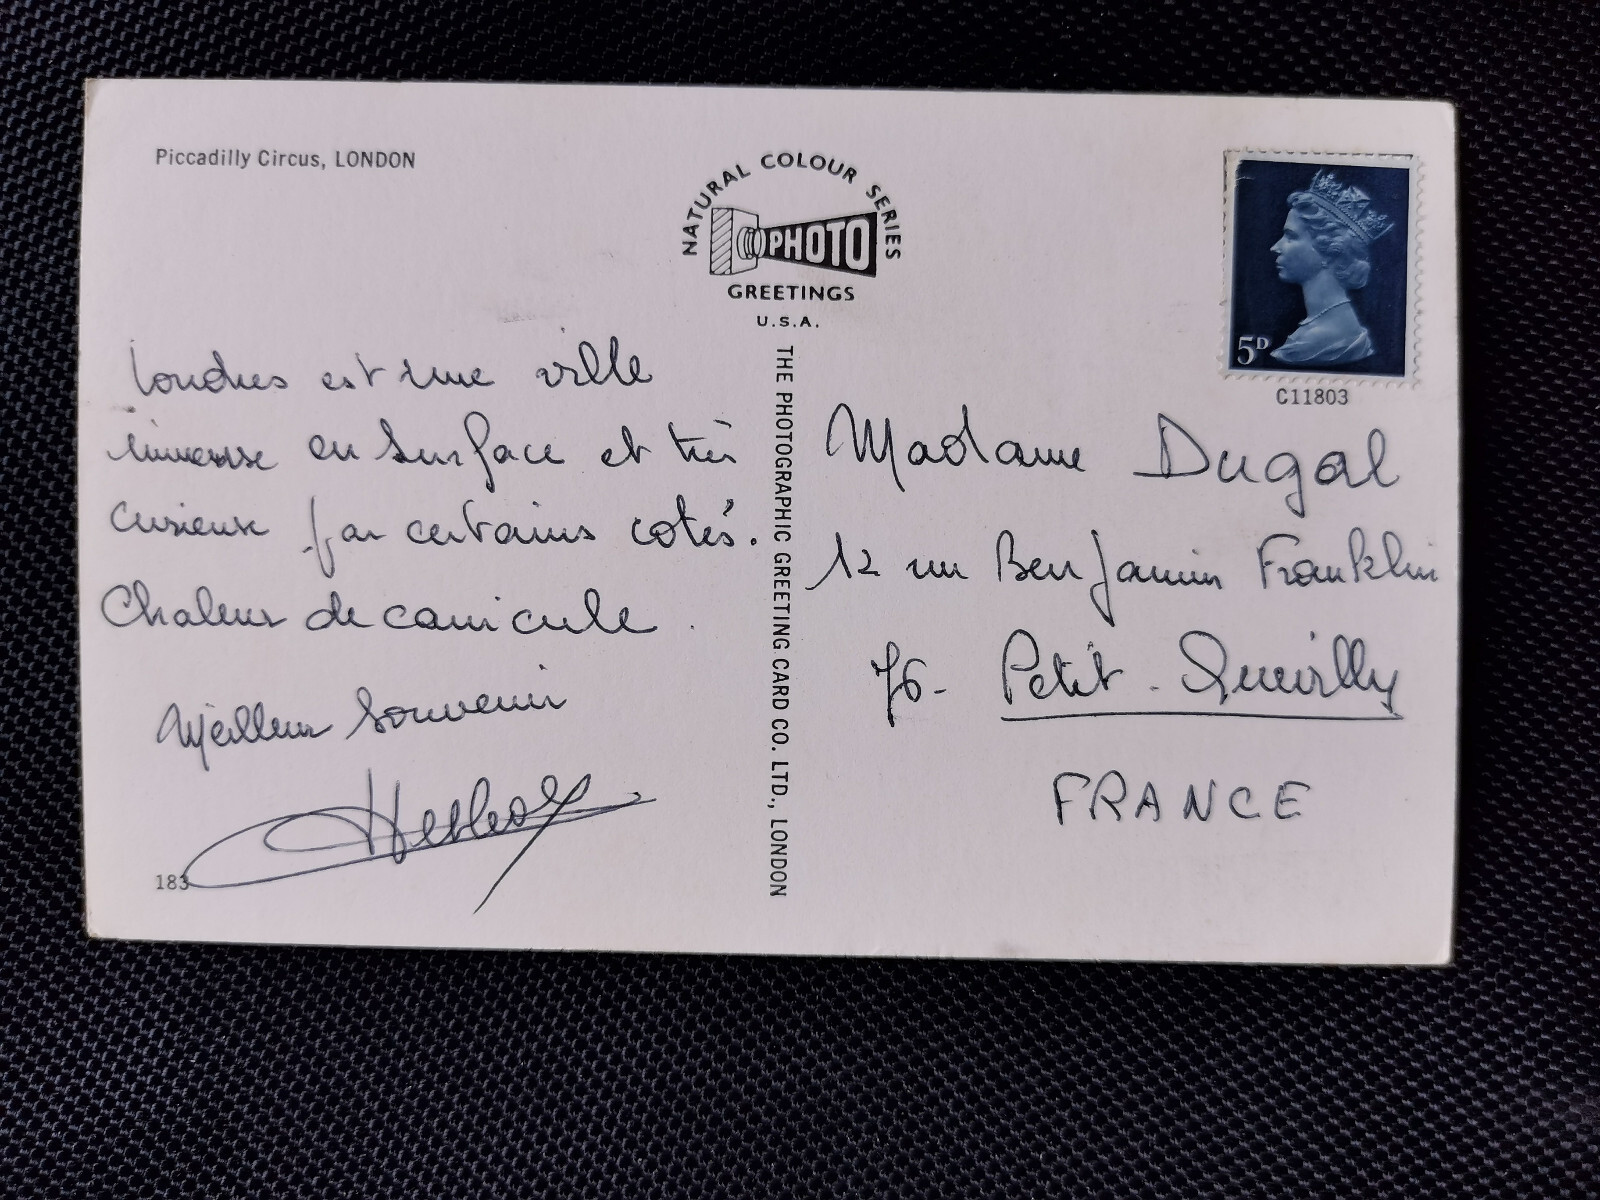 Piccadilly Circus, LONDON
NATURAL COLOUR SERIES
PHOTO
GREETINGS
U.S.A.
THE PHOTOGRAPHIC GREETING CARD CO. LTD., LONDON
5D
C11803
Londres est une ville
immense en surface et très
curieuse par certains cotés.
Chaleur de canicule.
Meilleur Souvenir
183
Madame Dugal
12 rue Benjamin Franklin
76 - Petit - Quevilly
FRANCE